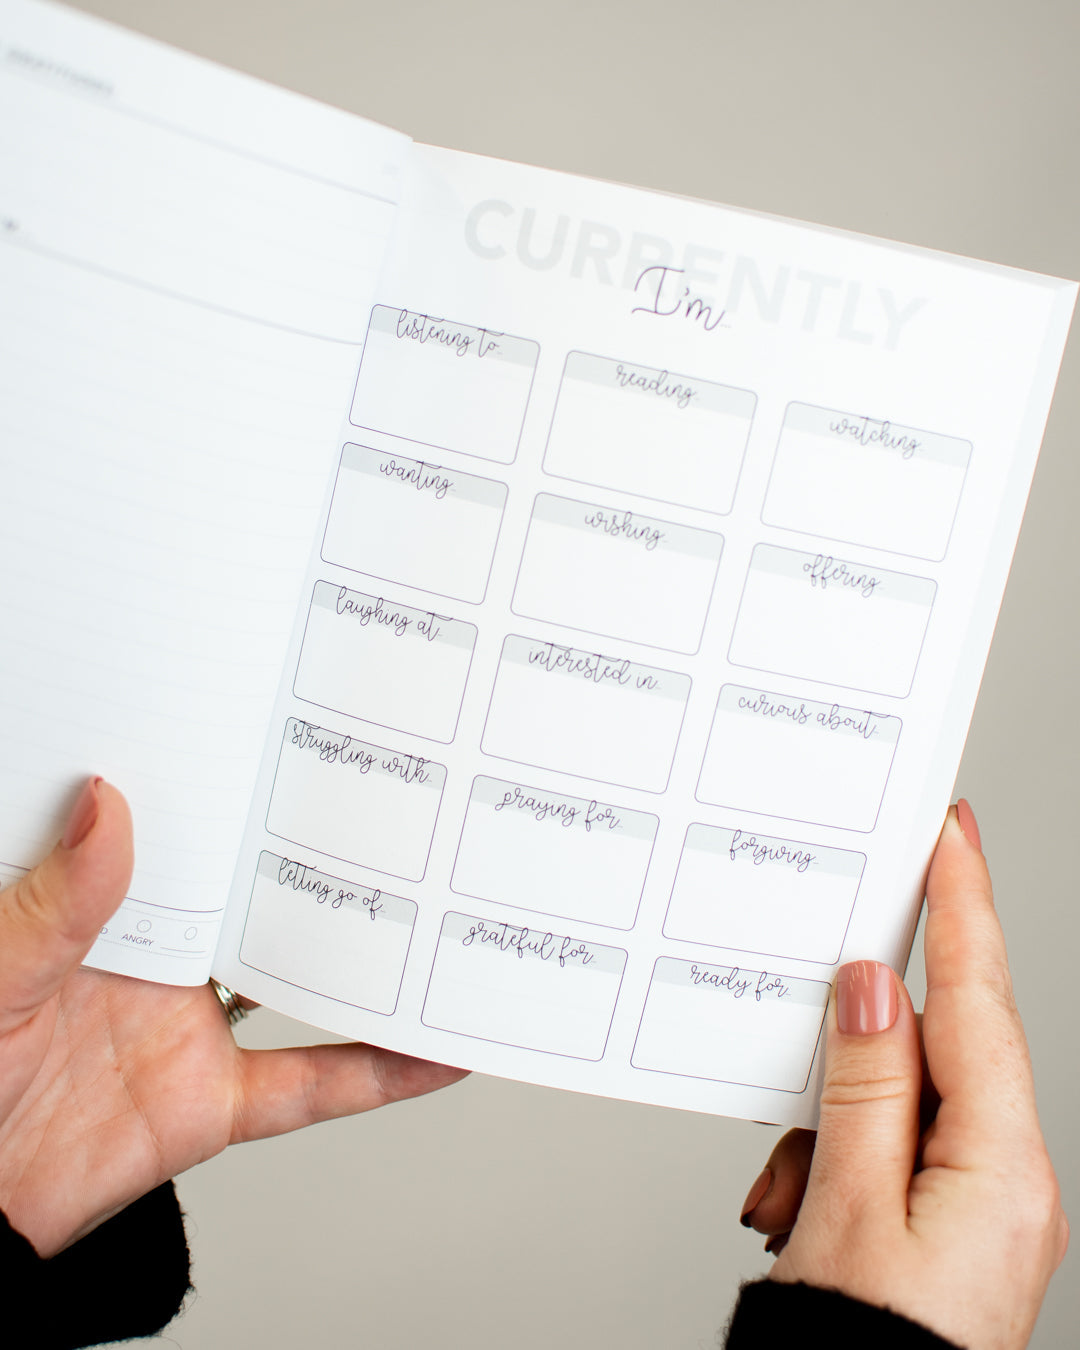 CURRENTLY
I'm...
listening to...
reading...
watching...
wanting...
wishing...
offering...
laughing at...
interested in...
curious about...
struggling with...
praying for...
forgiving...
letting go of...
grateful for...
ready for...
ANGRY